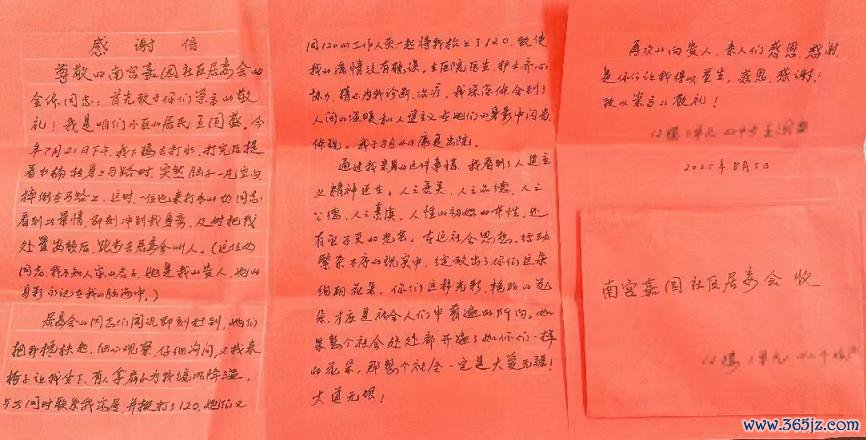 感谢信
尊敬的南宫嘉园社区居委会的
全体同志：首先致于你们崇高的敬
礼！我是咱们小区的居民王国
年7月21日下午，我下楼去打水，打完后提
着水桶转身上马路时，突然脑子一片空白
摔倒在马路上，这时，一位也来打水的女同志
看到此景情，即刻冲到我身旁，及时把我
处置安顿后，跑步去居委会叫人。（这位女
同志，我不知人家的名字，她是我的贵人，她的
身影永记在我的脑海中。）
居委会的同志们闻讯即刻赶到，她们
把我搀扶起，细心观察，仔细询问，又找来
椅子让我坐下，有人拿扇子为我扇风降温，
与此同时联系我家属，并拨打了120，她们又
同120的工作人员一起将我抬上了120，致使
我的病情没有耽误，在医院医生、护士齐心
协力，精心为我诊断、治疗，我深深体会到了
人间的温暖和人道主义在她们的身影中闪光
体现。我于8月4日康复出院。
通过我亲身的这件事情，我看到了人道主
义精神还在，人之善美，人之品德，人之
公德，人之素质，人性的初始的本性，还
有金子般的光芒。在这社会思想、行动
繁杂不序的现实中，绽放出了你们这朵
绚丽花朵，你们这种光彩，艳丽的花
朵，才应是社会人们中普遍的所向，如
果整个社会处处都开遍了如你们一样
的花朵，那整个社会一定是大爱无疆！
大道无垠！
再次的向贵人，亲人们感恩，感谢，
是你们让我得以重生，感恩，感谢！
致以崇高的敬礼！
2025年8月5日
南宫嘉园社区居委会 收